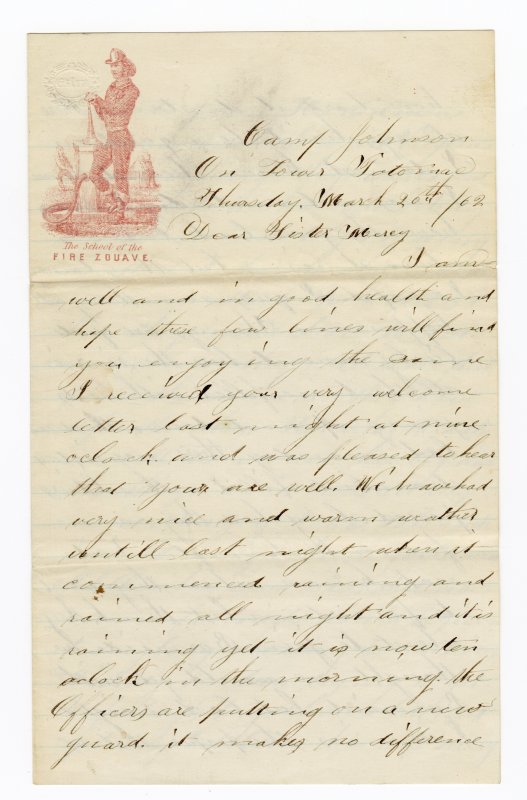 The School of the
FIRE ZOUAVE.
Camp Johnson
On Lower Potomac
Thursday, March 20th /62
Dear Sister Mercy
I am
well and in good health and
hope these few lines will find
you enjoying the same
I received your very welcome
letter last night at nine
oclock and was pleased to hear
that you are well. We have had
very nice and warm weather
untill last night when it
commenced raining and
rained all night and it is
raining yet it is now ten
oclock in the morning. the
Officers are putting on a new
guard. it makes no difference